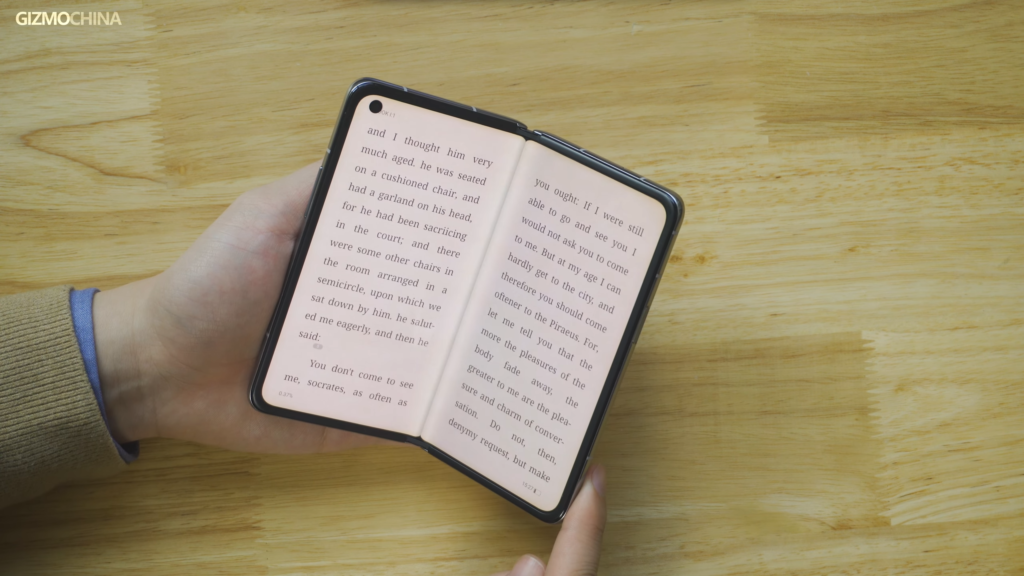 GIZMOCHINA
and I thought him very
much aged. he was seated
on a cushioned chair, and
had a garland on his head,
for he had been sacriicing
in the court; and there
were some other chairs in
the room arranged in a
semicircle, upon which we
sat down by him. he salut-
ed me eagerly, and then he
said:
You don't come to see
me, socrates, as often as
you ought: If I were still
able to go and see you I
would not ask you to come
to me. But at my age I can
hardly get to the city, and
therefore you should come
oftener to the Piraeus. For,
let me tell you that the
more the pleasures of the
body fade away, the
greater to me are the plea-
sure and charm of conver-
sation. Do not, then,
denymy request, but make